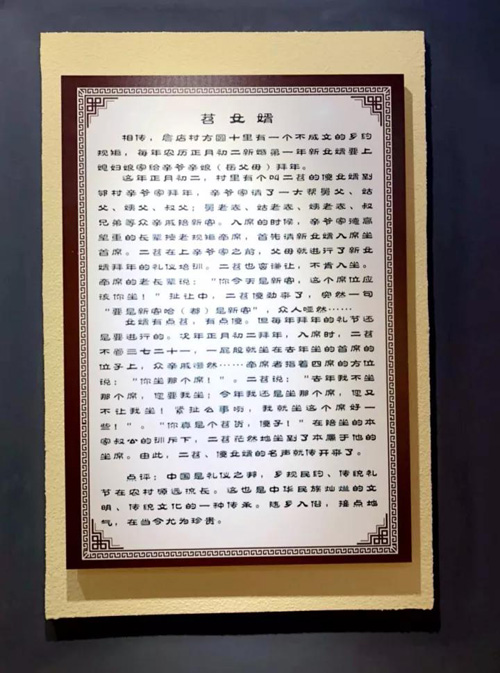 苕女婿
相传,詹店村方圆十里有一个不成文的乡约
规矩,每年农历正月初二新婚第一年新女婿要上
媳妇娘家给亲爷亲娘(岳父母)拜年。
这年正月初二,村里有个叫二苕的傻女婿到
邻村亲爷家拜年,亲爷家请了一大帮舅父、姑
父、姨父、叔父;舅老表、姑老表、姨老表、叔
兄弟等众亲戚陪新客。入席的时候,亲爷家德高
望重的长辈按老规矩牵席,首先请新女婿入席坐
首席。二苕在上亲爷家之前,父母就进行了新女
婿拜年的礼仪培训。二苕也客谦让,不肯入坐。
牵席的老长辈说:“你今天是新客,这个席位应
该你坐!”扯让中,二苕傻劲来了,突然一句
“要是新客哈(都)是新客”,众人哑然……
女婿有点苕,有点傻。但每年拜年的礼节还
是要进行的。次年正月初二拜年,入席时,二苕
不管三七二十一,一屁股就坐在去年坐的首席的
位子上,众亲戚愕然……牵席者指着四席的方位
说:“你坐那个席!”。二苕说:“去年我不坐
那个席,您要我坐!今年我还是坐那个席,您又
不让我坐!紧扯么事哟,我就坐这个席好一
些!”。“你真是个苕货,傻子!”在陪坐的本
家叔公的训斥下,二苕茫然地坐到了本属于他的
坐席。由此,二苕、傻女婿的名声就传开来了。
点评:中国是礼仪之邦,乡规民约、传统礼
节在农村源远流长。这也是中华民族灿烂的文
明、传统文化的一种传承。随乡入俗,接点地
气,在当今尤为珍贵。